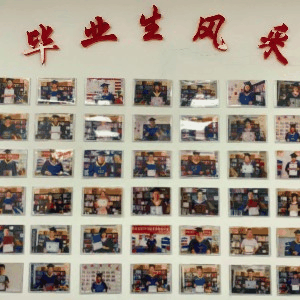 毕业生风采